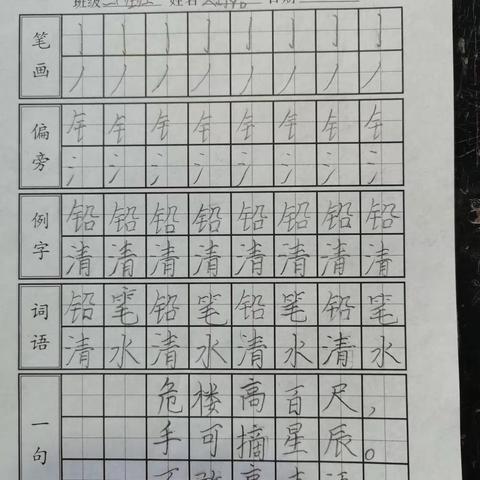 班级 姓名 日期
笔画
偏旁
钅钅钅钅钅钅钅钅
氵氵氵氵氵氵氵氵
例字
铅铅铅铅铅铅铅铅
清清清清清清清清
词语
铅笔铅笔铅笔铅笔
清水清水清水清水
一句
危楼高百尺，
手可摘星辰。